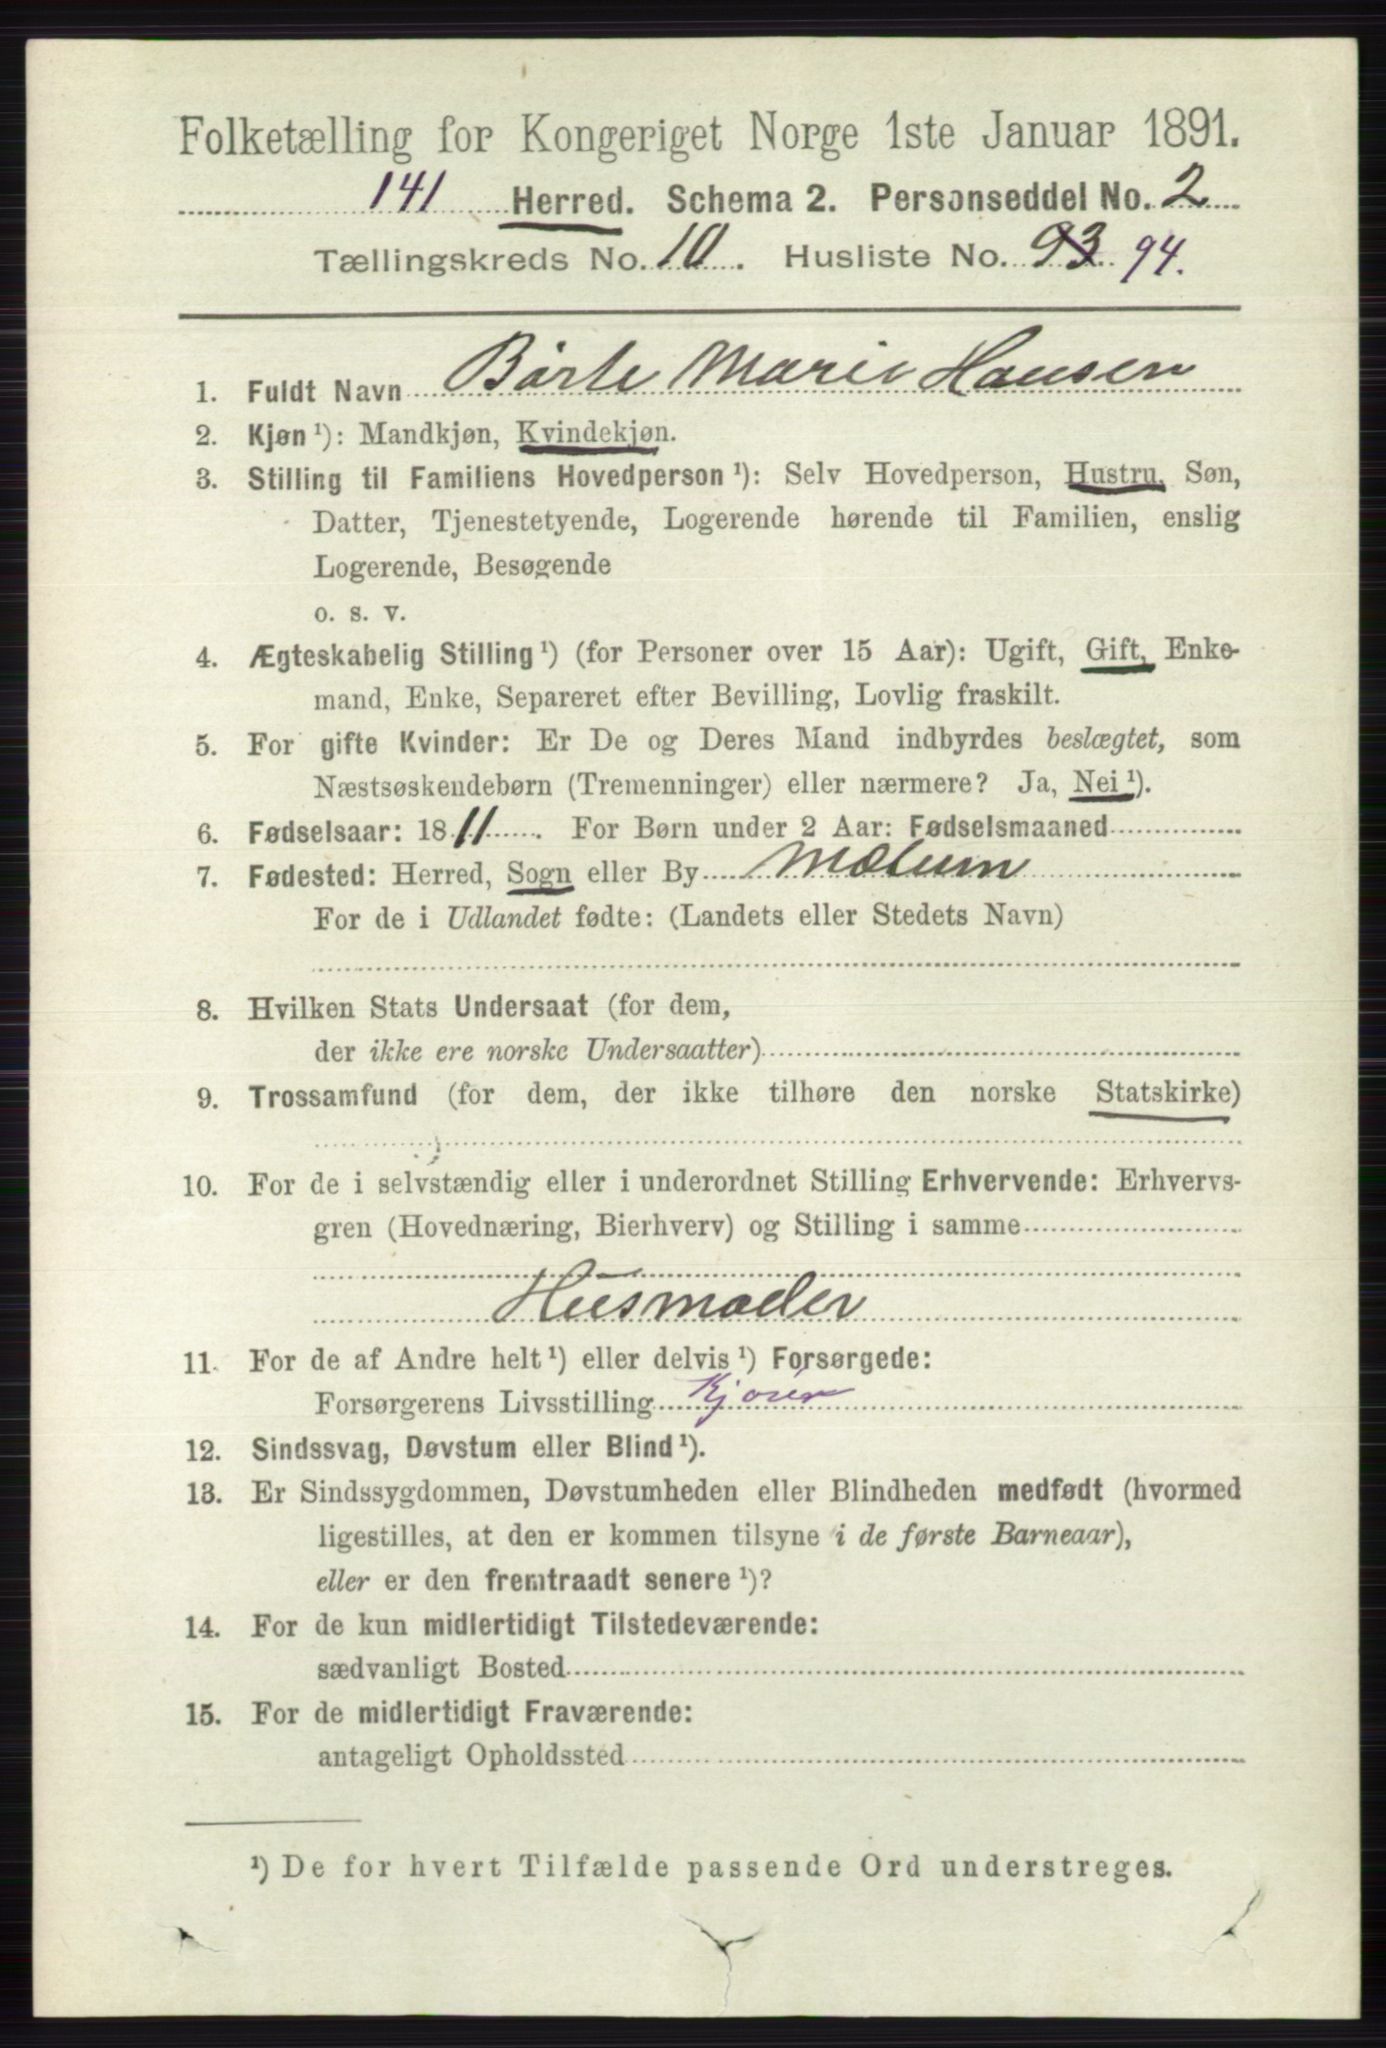 Folketælling for Kongeriget Norge 1ste Januar 1891.
141 Herred. Schema 2. Personseddel No. 2
Tællingskreds No. 10. Husliste No. 93 94.
1. Fuldt Navn Børte Marie Hansen
2. Kjøn ¹): Mandkjøn, Kvindekjøn.
3. Stilling til Familiens Hovedperson ¹): Selv Hovedperson, Hustru, Søn,
Datter, Tjenestetyende, Logerende hørende til Familien, enslig
Logerende, Besøgende
o. s. v.
4. Ægteskabelig Stilling ¹) (for Personer over 15 Aar): Ugift, Gift, Enke-
mand, Enke, Separeret efter Bevilling, Lovlig fraskilt.
5. For gifte Kvinder: Er De og Deres Mand indbyrdes beslægtet, som
Næstsøskendebørn (Tremenninger) eller nærmere? Ja, Nei ¹).
6. Fødselsaar: 1811. For Børn under 2 Aar: Fødselsmaaned
7. Fødested: Herred, Sogn eller By Modum
For de i Udlandet fødte: (Landets eller Stedets Navn)
8. Hvilken Stats Undersaat (for dem,
der ikke ere norske Undersaatter)
9. Trossamfund (for dem, der ikke tilhøre den norske Statskirke)
10. For de i selvstændig eller i underordnet Stilling Erhvervende: Erhvervs-
gren (Hovednæring, Bierhverv) og Stilling i samme
Husmoder
11. For de af Andre helt ¹) eller delvis ¹) Forsørgede:
Forsørgerens Livsstilling
12. Sindssvag, Døvstum eller Blind ¹).
13. Er Sindssygdommen, Døvstumheden eller Blindheden medfødt (hvormed
ligestilles, at den er kommen tilsyne i de første Barneaar),
eller er den fremtraadt senere ¹)?
14. For de kun midlertidigt Tilstedeværende:
sædvanligt Bosted
15. For de midlertidigt Fraværende:
antageligt Opholdssted
¹) De for hvert Tilfælde passende Ord understreges.